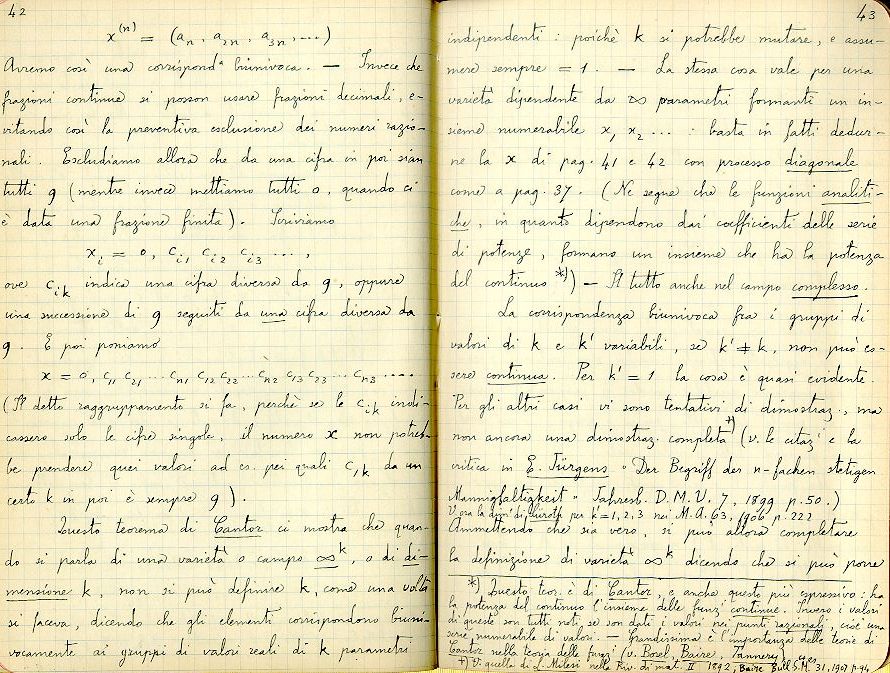 42
x⁽ⁿ⁾ = (a₁ₙ, a₂ₙ, a₃ₙ, ...)
Avremo così una corrispondᵃ biunivoca. — Invece che
frazioni continue si posson usare frazioni decimali, e-
vitando così la preventiva esclusione dei numeri razio-
nali. Escludiamo allora che da una cifra in poi sian
tutti 9 (mentre invece mettiamo tutti 0, quando ci
è data una frazione finita). Scriviamo
xᵢ = 0, cᵢ₁ cᵢ₂ cᵢ₃ ....,
ove cᵢₖ indica una cifra diversa da 9, oppure
una successione di 9 seguiti da una cifra diversa da
9. E poi poniamo
x = 0, c₁₁ c₂₁ ... cₙ₁ c₁₂ c₂₂ ... cₙ₂ c₁₃ c₂₃ ... cₙ₃ ....
(Il detto raggruppamento si fa, perchè se le cᵢₖ indi-
cassero solo le cifre singole, il numero x non potreb-
be prendere quei valori ad es. pei quali c₁ₖ da un
certo k in poi è sempre 9).
Questo teorema di Cantor ci mostra che quan-
do si parla di una varietà o campo ∞ᵏ, o di di-
mensione k, non si può definire k, come una volta
si faceva, dicendo che gli elementi corrispondono biuni-
vocamente ai gruppi di valori reali di k parametri
43
indipendenti: poichè k si potrebbe mutare, e assu-
mere sempre = 1. — La stessa cosa vale per una
varietà dipendente da ∞ parametri formanti un in-
sieme numerabile x₁ x₂ ... : basta in fatti dedur-
ne la x di pag. 41 e 42 con processo diagonale
come a pag. 37. (Ne segue che le funzioni analiti-
che, in quanto dipendono dai coefficienti delle serie
di potenze, formano un insieme che ha la potenza
del continuo *)) — Il tutto anche nel campo complesso.
La corrispondenza biunivoca fra i gruppi di
valori di k e k' variabili, se k' ≠ k, non può es-
sere continua. Per k' = 1 la cosa è quasi evidente.
Per gli altri casi vi sono tentativi di dimostraz., ma
non ancora una dimostraz. completa +) (v. le citazⁱ e la
critica in E. Jürgens "Der Begriff der n-fachen stetigen
Mannigfaltigkeit" Jahresb. D.M.V. 7, 1899 p. 50.)
V. ora la dimᵉ di Lüroth per k' = 1, 2, 3 nei M.A. 63, 1906 p. 222
Ammettendo che sia vero, si può allora completare
la definizione di varietà ∞ᵏ dicendo che si può porre
*) Questo teor. è di Cantor, e anche questo più espressivo: ha
la potenza del continuo l'insieme delle funzⁱ continue. Invero i valori
di queste son tutti noti, se son dati i valori nei punti razionali, cioè una
serie numerabile di valori. — Grandissima è l'importanza delle teorie di
Cantor nella teoria delle funzⁱ (v. Borel, Baire, Tannery)
+) V. quella di L. Milesi nella Riv. di mat. II 1892, Baire Bull. S.M. 31, 1907 p. 94